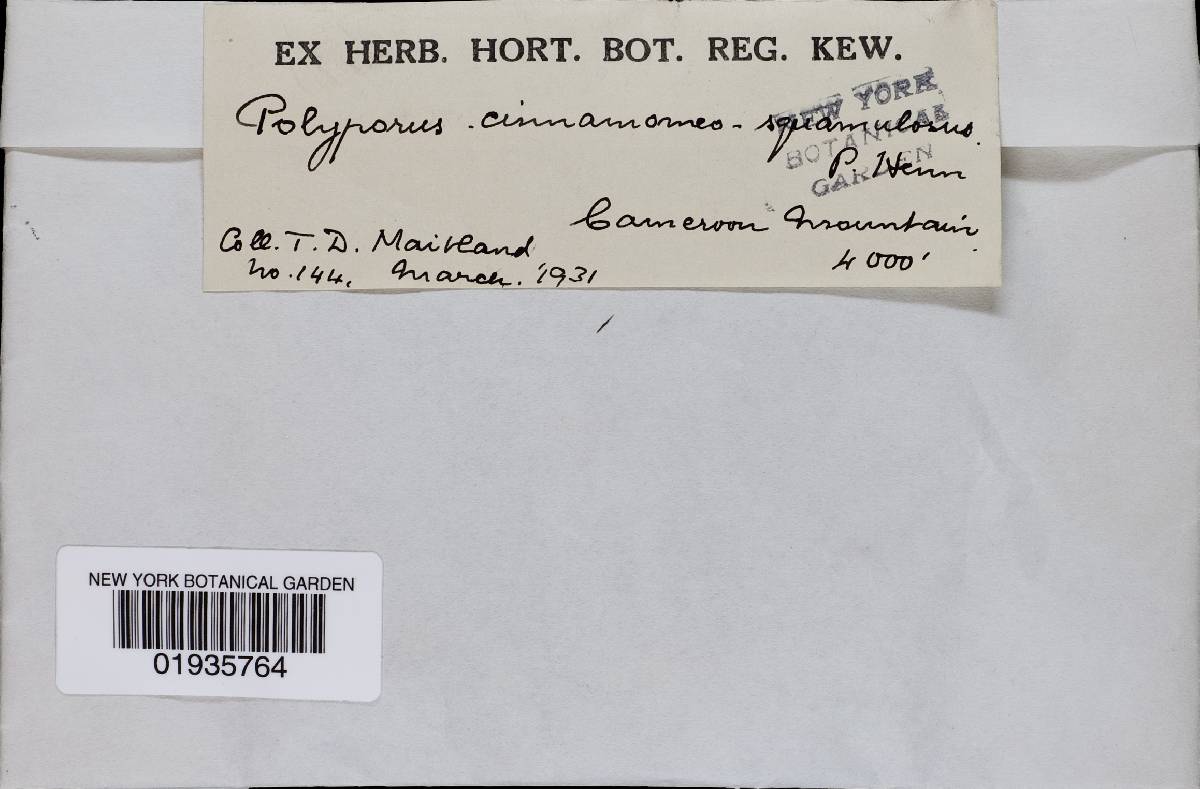 EX HERB. HORT. BOT. REG. KEW.
Polyporus cinnamomeo-squamulosus.
P. Henn
NEW YORK
BOTANICAL
GARDEN
Cameroon Mountain
4000'
Coll. T. D. Maitland
No. 144. March. 1931
NEW YORK BOTANICAL GARDEN
01935764